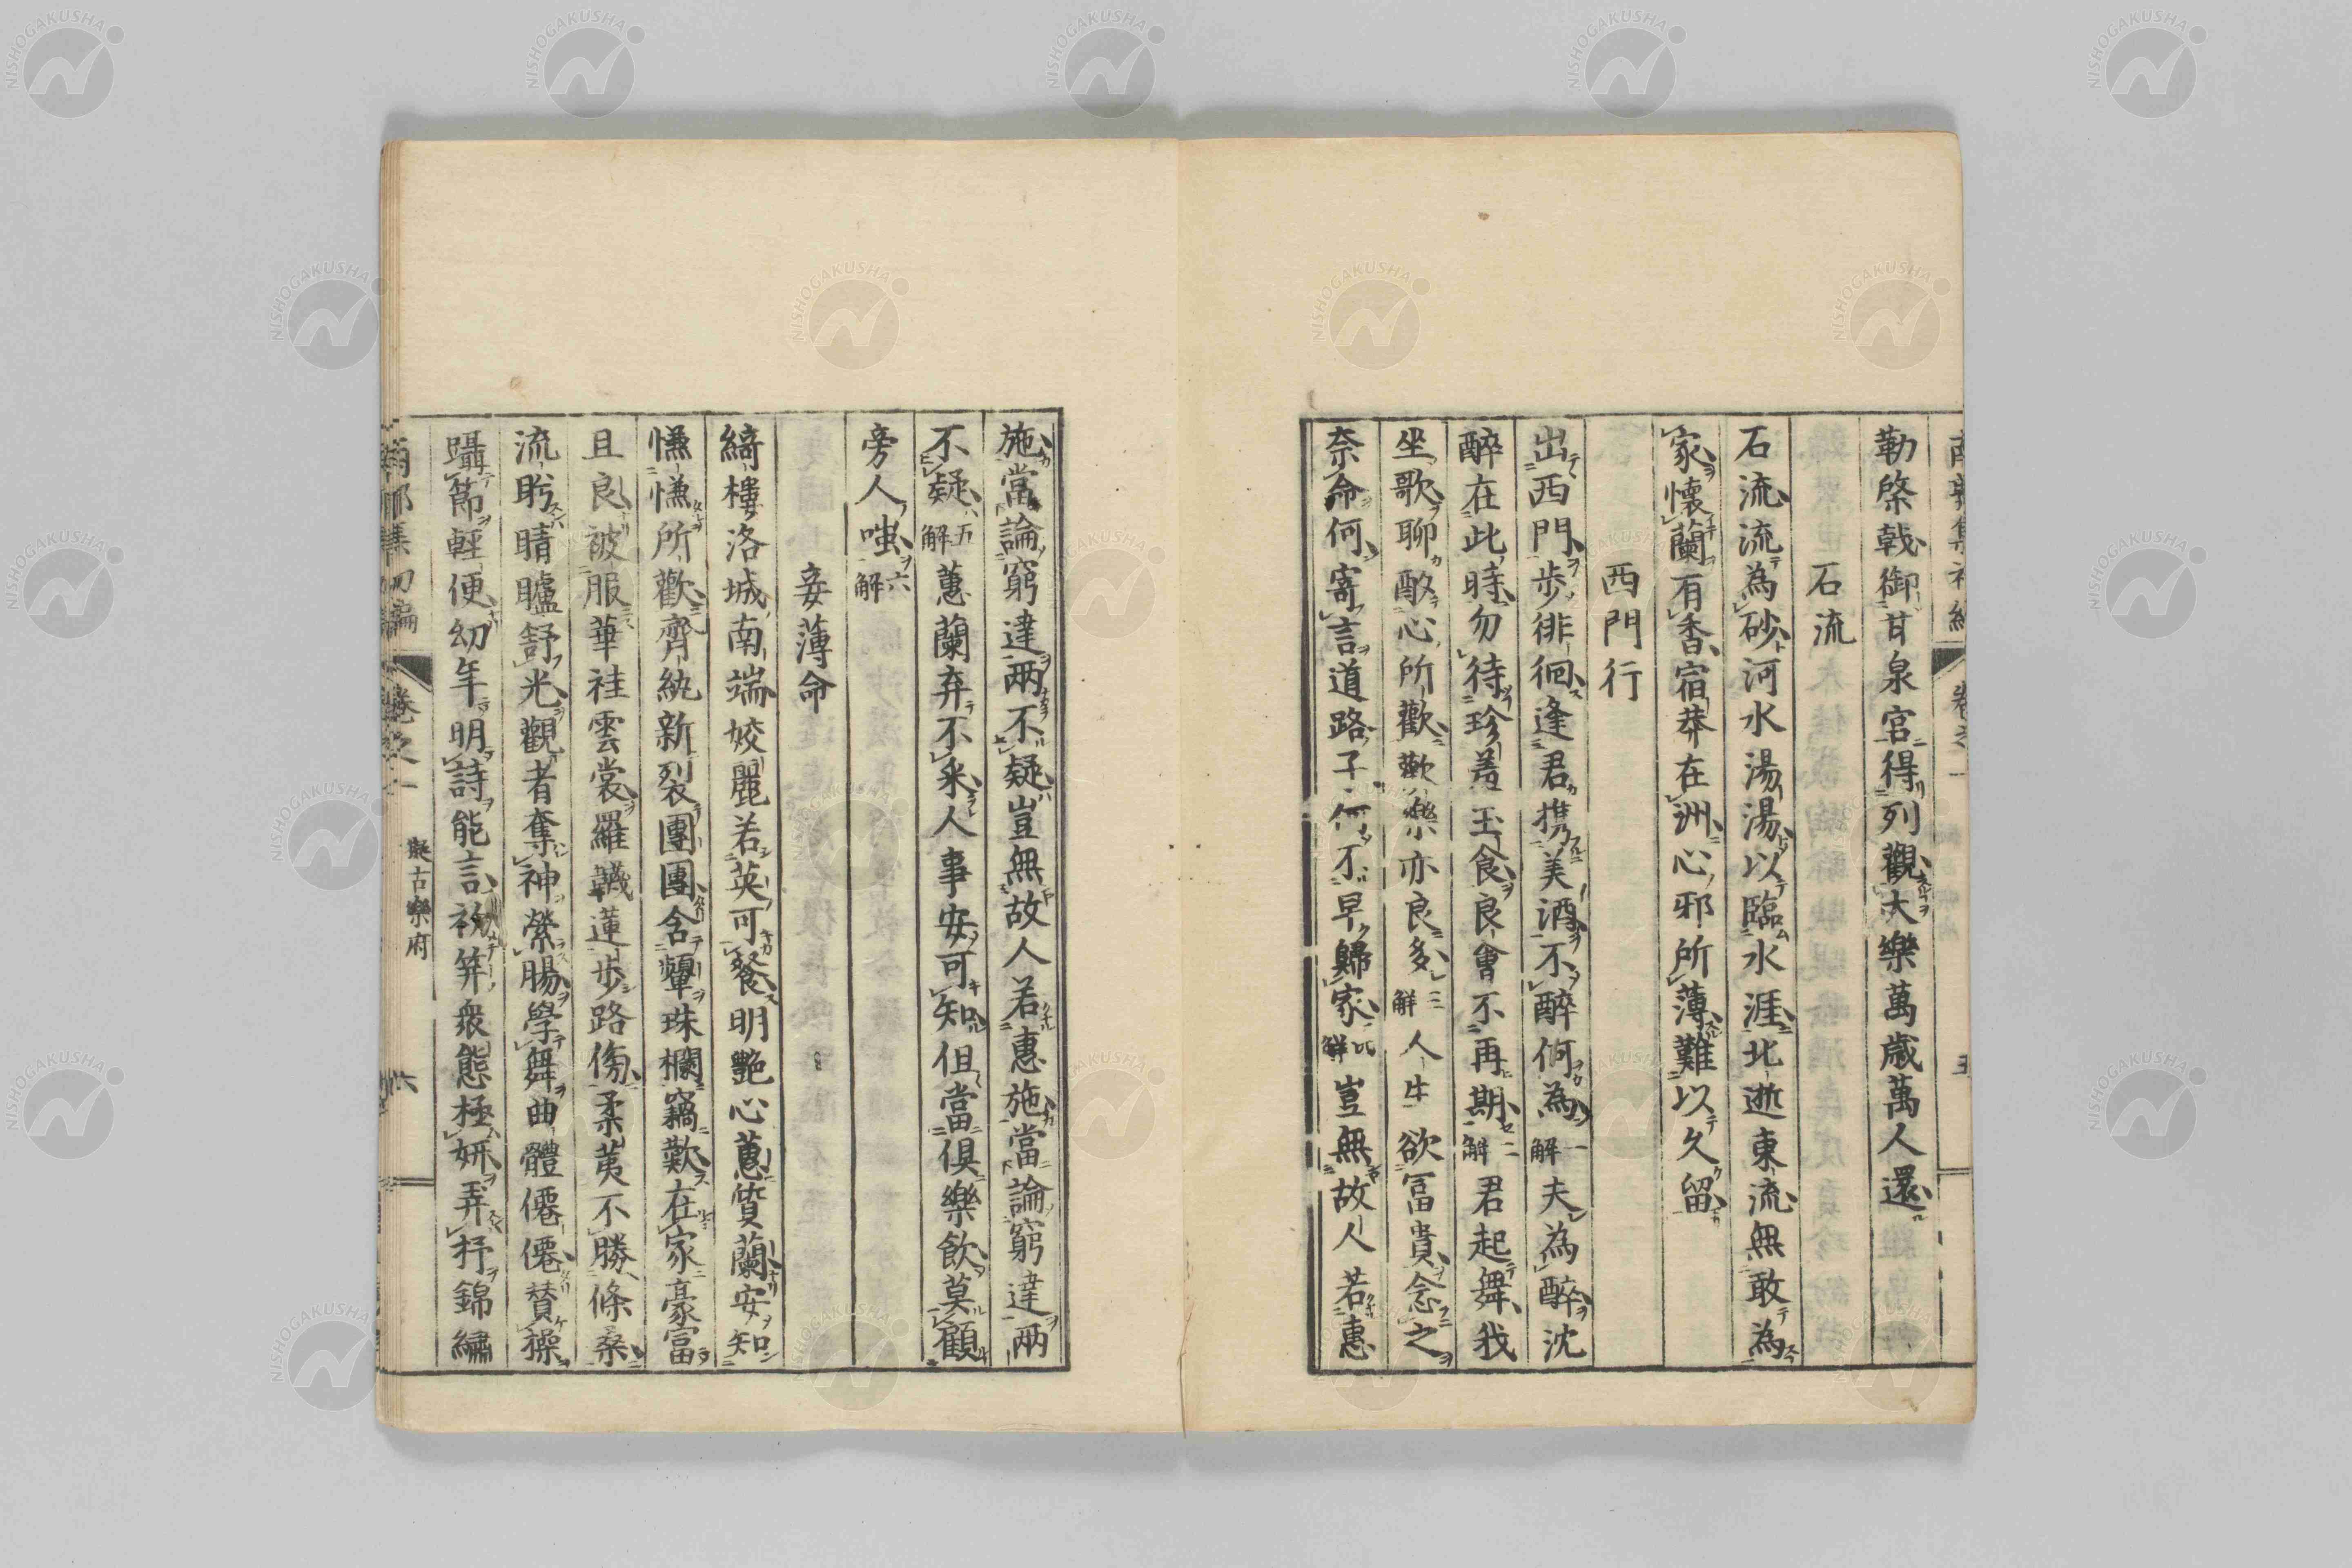 勒棨戟御甘泉宮得列觀大樂萬歲萬人還
石流
石流流為砂河水湯湯以臨水涯北逝東流無敢為
家懷蘭有香宿莽在洲心邪所薄難以久留
西門行
出西門步徘徊逢君携美酒不醉何為一解夫為醉沈
醉在此時勿待珍羞玉食良會不再期二解君起舞我
坐歌聊酌心所歡歡樂亦良多三解人生欲冨貴念之
奈命何寄言道路子何不早歸家四解豈無故人若惠
施當論窮達兩不疑豈無故人若惠施當論窮達兩
不疑五解蕙蘭弃不采人事安可知但當俱樂飲莫顧
旁人嗤六解
妾薄命
綺樓洛城南端姣麗若英可餐明艷心蕙質蘭安知
慊慊所歡齊紈新裂團團含顰珠欄竊歎在家豪富
且良被服華袿雲裳羅韈蓮步路傷柔荑不勝條桑
流眄睛矑舒光觀者奪神縈腸學舞曲體僊僊賛操
躡節輕便幼年明詩能言衆態極妍弄抒錦繡
卷之一
擬古樂府
六
NISHOGAKUSHA